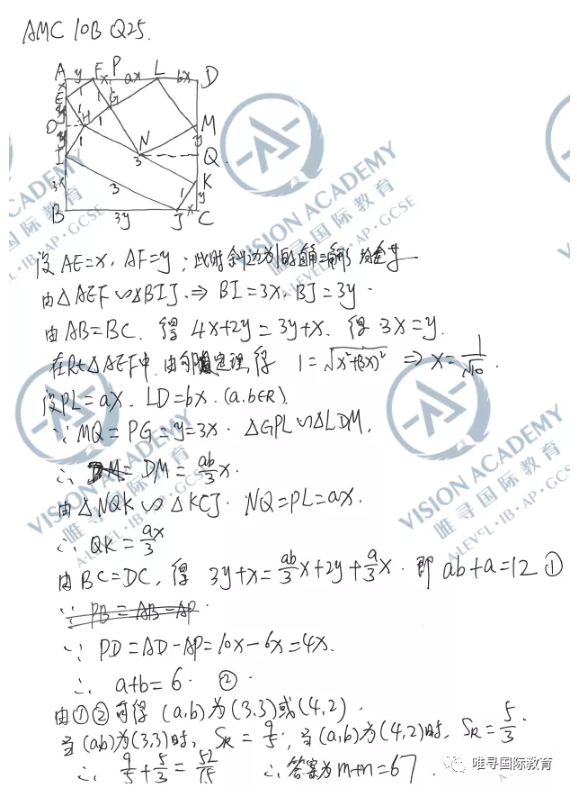 AMC 10B Q25.
A y F P ax L bx D
x x
E 1 1 G
y 1
O H 1 M
y 1 N y
I 3 Q
3x 3 1 K
y
B 3y J x C
设 AE=x, AF=y; 此时斜边为1的直角三角形均全等
由△AEF∽△BIJ. ⇒ BI=3x, BJ=3y.
由 AB=BC. 得 4x+2y=3y+x. 得 3x=y.
在Rt△AEF中. 由勾股定理得 1=√x²+(3x)² ⇒ x=1/√10.
设PL=ax. LD=bx. (a.b∈R)
∵ MQ=PG=y=3x. △GPL∽△LDM.
∴ DM=ab/3 x.
由△NQK∽△KCJ. NQ=PL=ax.
∴ QK=ax/3
由BC=DC, 得 3y+x=ab/3 x+2y+a/3 x. 即 ab+a=12 ①
∵ PB=AB-AP.
∵ PD=AD-AP=10x-6x=4x.
∴ a+b=6. ②.
由①②可得 (a,b)为(3,3)或(4,2).
当(a,b)为(3,3)时, SR=9/5; 当(a,b)为(4,2)时, SR=5/3.
∴ 9/5+5/3=52/15 ∴答案为m+n=67.
VISION ACADEMY
唯寻国际教育
A-LEVEL·IB·AP·GCSE
唯寻国际教育